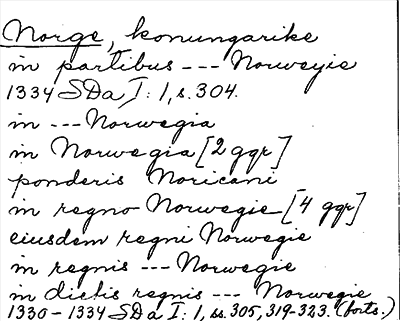 Norge, konungarike
in partibus --- Norweyie
1334 SDa I: 1, s. 304.
in --- Norwegia
in Norwegia [2 ggr]
ponderis Noricani
in regno Norwegie [4 ggr]
eiusdem regni Norwegie
in regnis --- Norwegie
in dictis regnis --- Norwegie
1330-1334 SDa I: 1, ss. 305, 319-323. (forts.)